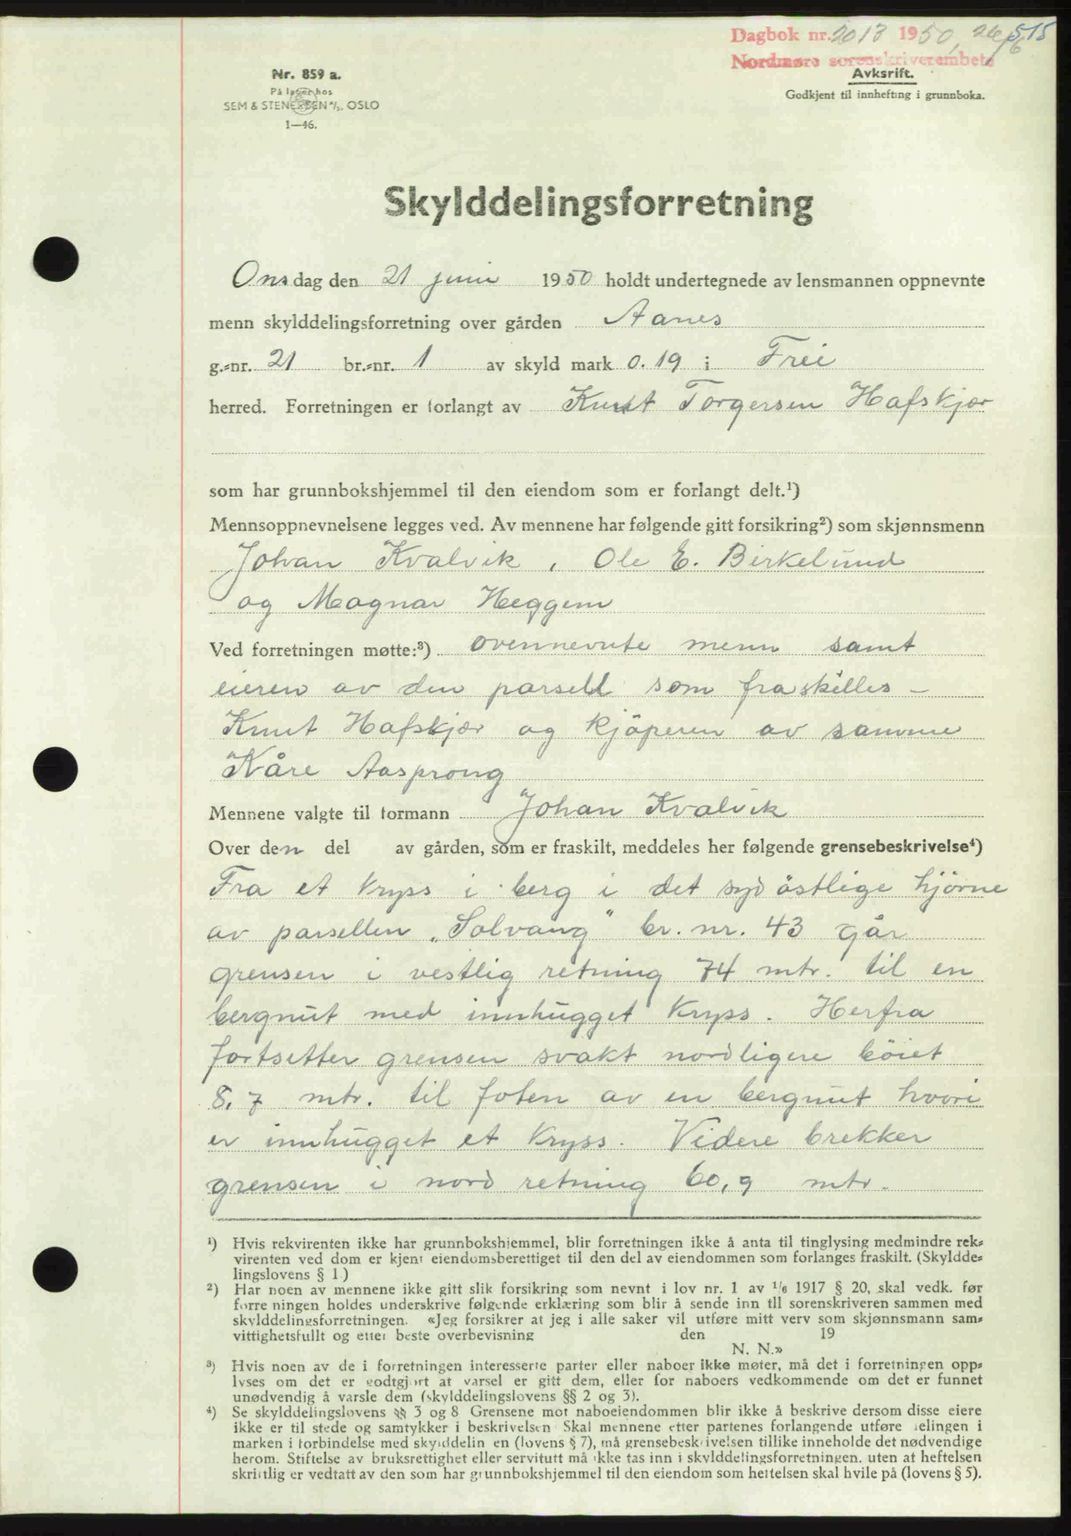 Dagbok nr. 2013 1950, 26/6 515
Nordmøre sorenskriverembete
Nr. 859 a.
På lager hos
SEM & STENERSEN A/S, OSLO
1—46.
Avskrift.
Godkjent til innhefting i grunnboka.
Skylddelingsforretning
Onsdag den 21 juni 1950 holdt undertegnede av lensmannen oppnevnte
menn skylddelingsforretning over gården Aanes
g.-nr. 21 br.-nr. 1 av skyld mark 0.19 i Frei
herred. Forretningen er forlangt av Knut Torgersen Hafskjær
som har grunnbokshjemmel til den eiendom som er forlangt delt.¹)
Mennsoppnevnelsene legges ved. Av mennene har følgende gitt forsikring²) som skjønnsmenn
Johan Kvalvik, Ole E. Birkelund
og Magnar Heggem
Ved forretningen møtte:³) ovennevnte menn samt
eieren av den parsell som fraskilles –
Knut Hafskjær og kjöperen av samme
Kåre Aasprong
Mennene valgte til formann Johan Kvalvik
Over den del av gården, som er fraskilt, meddeles her følgende grensebeskrivelse⁴)
Fra et kryss i berg i det sydöstlige hjörne
av parsellen „Solvang" br. nr. 43 går
grensen i vestlig retning 74 mtr. til en
bergnut med innhugget kryss. Herfra
fortsetter grensen svakt nordligere böiet
8,7 mtr. til foten av en bergnut hvori
er innhugget et kryss. Videre brekker
grensen i nord retning 60,9 mtr.
¹) Hvis rekvirenten ikke har grunnbokshjemmel, blir forretningen ikke å anta til tinglysing medmindre rek-
virenten ved dom er kjent eiendomsberettiget til den del av eiendommen som forlanges fraskilt. (Skyldde-
lingslovens § 1)
²) Har noen av mennene ikke gitt slik forsikring som nevnt i lov nr. 1 av 1/6 1917 § 20, skal vedk. før
forretningen holdes underskrive følgende erklæring som blir å sende inn til sorenskriveren sammen med
skylddelingsforretningen. «Jeg forsikrer at jeg i alle saker vil utføre mitt verv som skjønnsmann sam-
vittighetsfullt og etter beste overbevisning den 19
N. N.»
³) Hvis noen av de i forretningen interesserte parter eller naboer ikke møter, må det i forretningen opp-
lyses om det er godtgjort at varsel er gitt dem, eller for naboers vedkommende om det er funnet
unødvendig å varsle dem (skylddelingslovens §§ 2 og 3).
⁴) Se skylddelingslovens §§ 3 og 8 Grensene mot naboeiendommen blir ikke å beskrive dersom disse eiere
ikke er til stede og samtykker i beskrivelsen Skal mennene etter partenes forlangende utføre delingen i
marken i forbindelse med skylddelingen (lovens § 7), må grensebeskrivelsen tillike inneholde det nødvendige
herom. Stiftelse av bruksrettighet eller servitutt må ikke tas inn i skylddelingsforretningen. uten at heftelsen
skriftlig er vedtatt av den som har grunnbokshjemmel til den eiendom som heftelsen skal hvile på (lovens § 5).